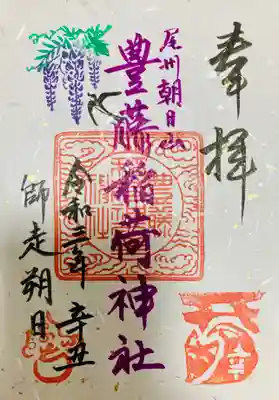 奉拝
尾州朝日山
豊藤稲荷神社
令和三年 辛丑
師走朔日